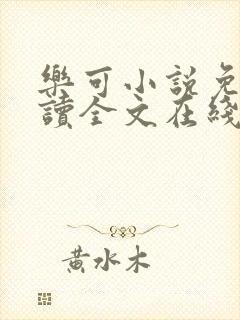 樂可小說免
讀全文在綫
黃水木